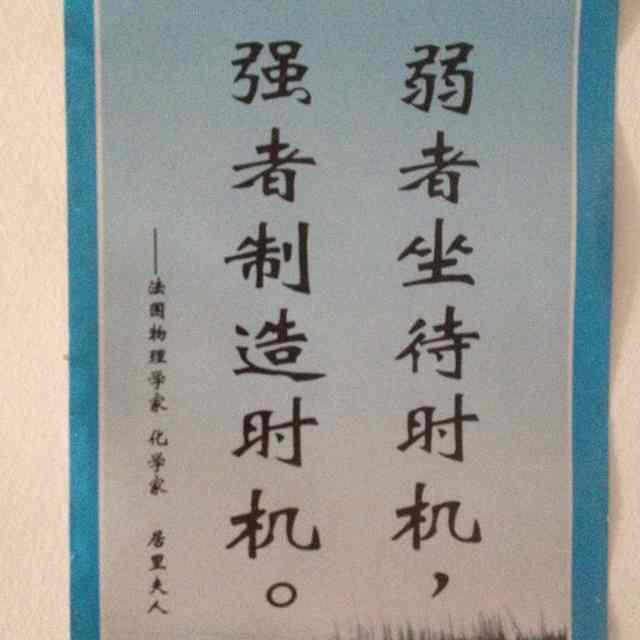 弱者坐待时机，
强者制造时机。
——法国物理学家 化学家 居里夫人